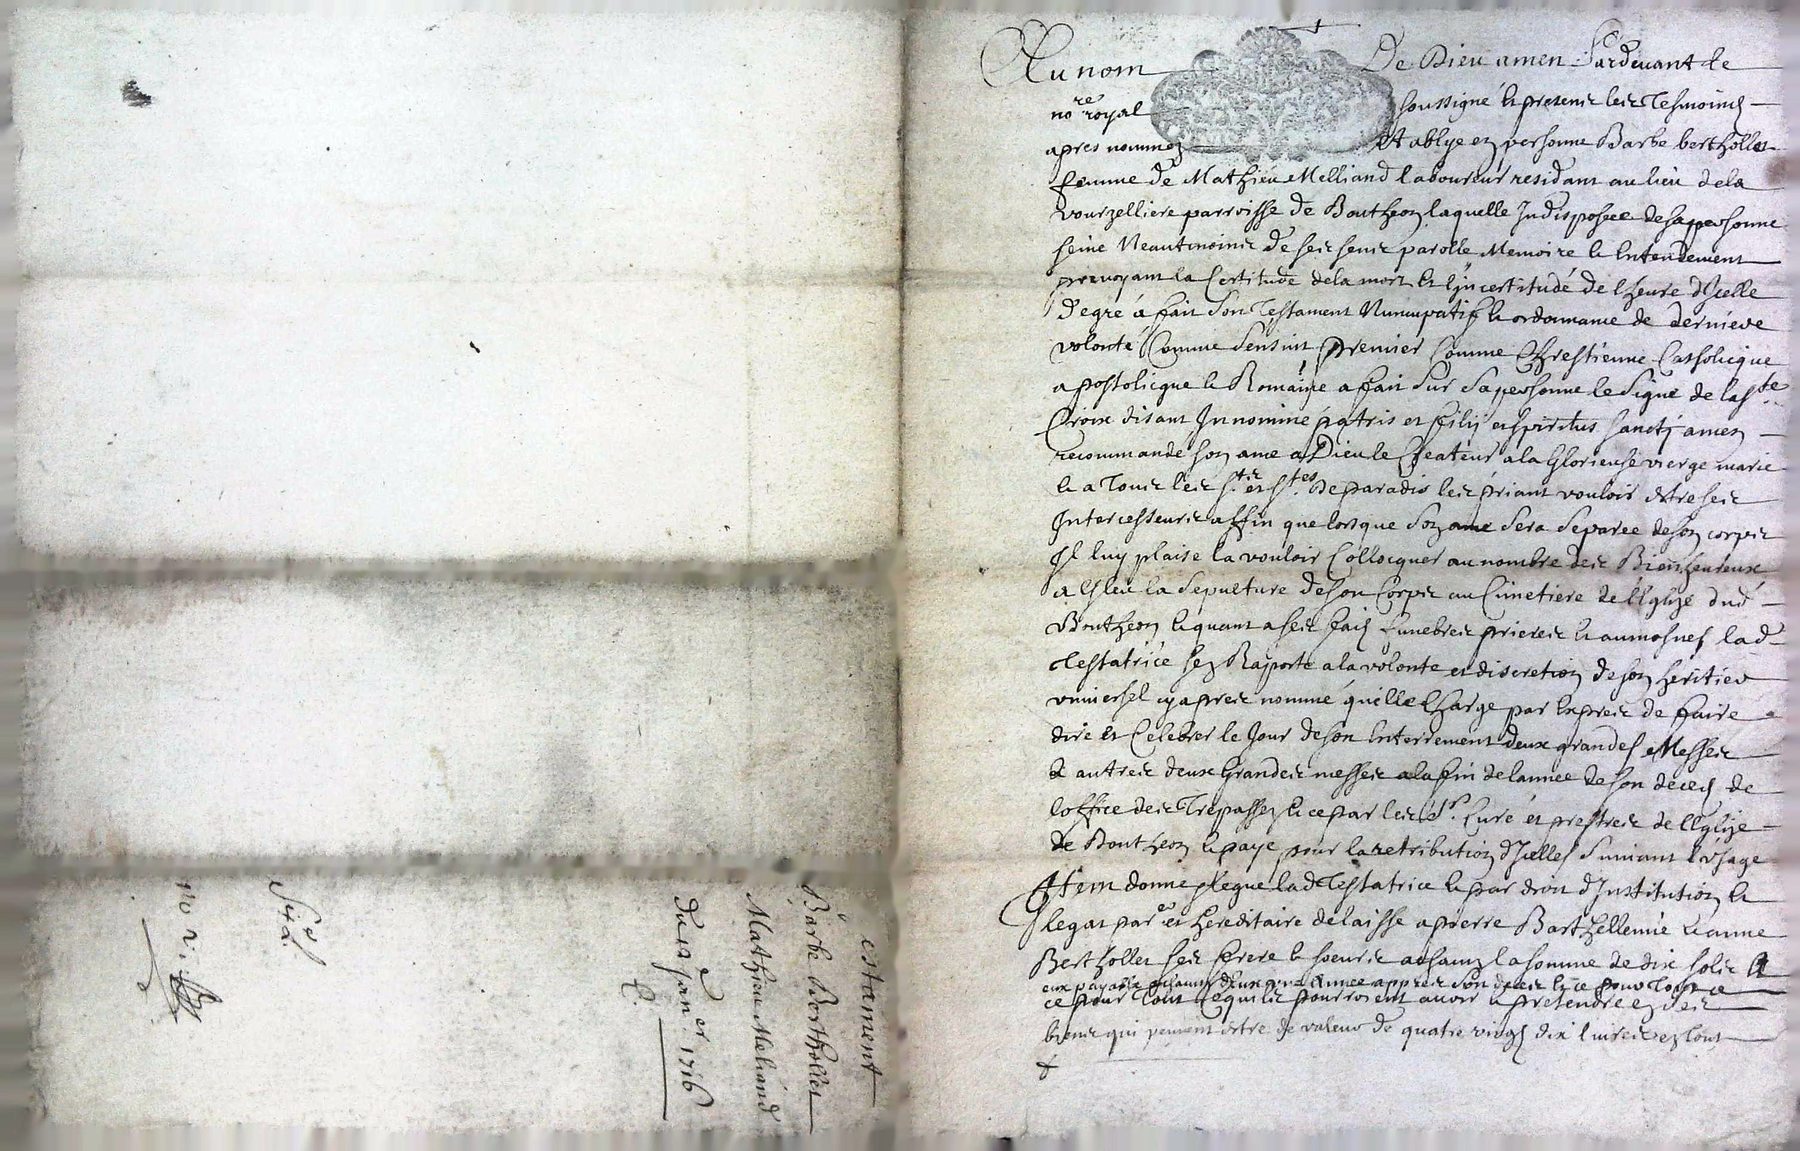 Au nom De Dieu amen Pardevant le
no.re royal soussigné & presents les Tesmoings
apres nommez Establye en personne Barbe berthollet
femme de Mathieu Melliand laboureur residant au lieu de la
vourzelliere parroisse de Boutheon laquelle Indisposeee de sa personne
seine Neantmoins de ses sens parolle Memoire & Entendement
prevoyant la Certitude de la mort et l'incertitude de l'heure d'Icelle
de gré a fait son Testament Nuncupatif & ordonnance de derniere
volonté Comme s'ensuit Premier Comme Chrestienne Catholicque
apostolicque & Romaine a fait sur sa personne le signe de la Ste
Croix disant In nomine patris et filij et spiritus sanctj amen
recommandé son ame a Dieu le Createur a la Glorieuse vierge marie
& a Tous les Sts et Stes de paradis les priant vouloir estre ses
Intercesseurs affin que lorsque son ame sera separee de son corps
Il luy plaise la vouloir Collocquer au nombre des Bienheureux
a Esleu la sepulture de son Corps au Cimetiere de l'Eglize dud
Boutheon & quant a ses frais funebres prieres & aumosnes lad
Testatrice s'en Raporte a la volonte et discretion de son heritier
universel cy apres nommé qu'elle Charge par Expres de faire
dire et Celebrer le Jour de son Enterrement deux grandes Messes
& autres deux Grandes messes a la fin de l'annee de son deces de
l'office des Trepassez & ce par les Srs Curé et prestres de l'Eglize
de Boutheon & paye pour la retribution d'Icelles suivant l'usage
Item donne & legue lad Testatrice & par droit d'Institution &
legat par.er et hereditaire delaisse a pierre Barthellemie & anne
Berthollet ses frere & soeurs a chauns la somme de dix sols
eux payable chauns deux une Annee appres son deces & ce pour tout ce
ce pour Tout ce qu'ils pourroient avoir & pretendre en ses
biens qui peuvent estre de valeur de quatre vingt dix livres en tout
Testament
Barbe Berthollet
Mathieu Meliand
du 12e Janer 1716